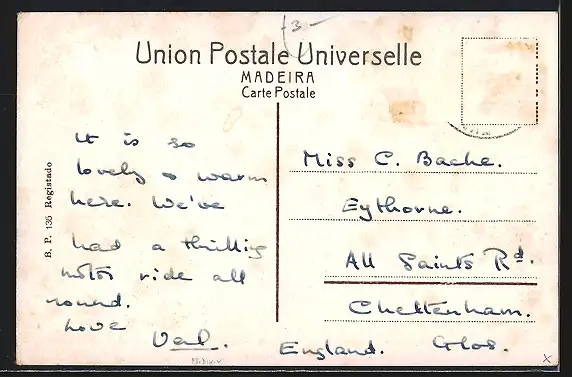 f3-
Union Postale Universelle
MADEIRA
Carte Postale
B. P. 135 Registado
It is so
lovely & warm
here. We've
had a thrilling
motor ride all
round.
Love
Miss C. Bache.
Eythorne.
All Saints Rd.
Cheltenham.
England. Glos.
x